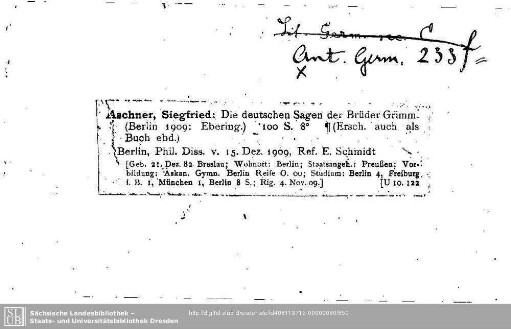 Lit. Germ. rec. C
Ant. Germ. 233 f
x
Aschner, Siegfried: Die deutschen Sagen der Brüder Grimm.
(Berlin 1909: Ebering.) 100 S. 8° ¶ (Ersch. auch als
Buch ebd.)
Berlin, Phil. Diss. v. 15. Dez. 1909, Ref. E. Schmidt
[Geb. 21. Dez. 82 Breslau; Wohnort: Berlin; Staatsangeh.: Preußen; Vor-
bildung: Askan. Gymn. Berlin Reife O. 02; Studium: Berlin 4, Freiburg
i. B. 1, München 1, Berlin 8 S.; Rig. 4. Nov. 09.] [U 10. 122
SLUB
Sächsische Landesbibliothek –
Staats- und Universitätsbibliothek Dresden